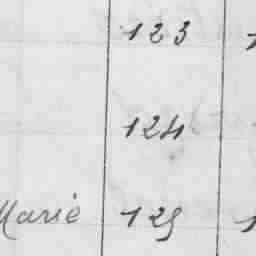 123
124
Marie 125